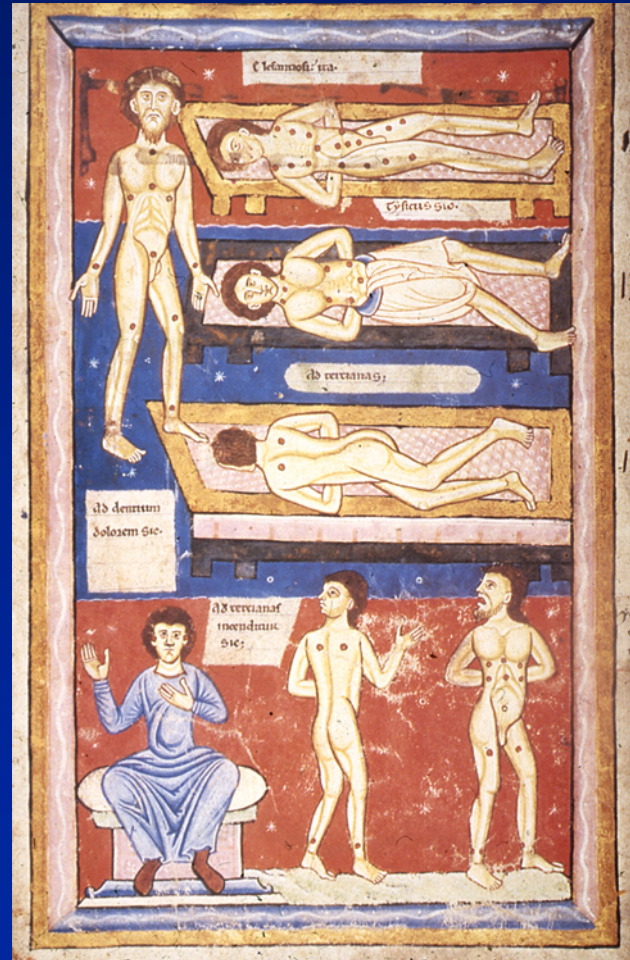 ita·
Tysicus sic·
Ad tercianas;
Ad dentium
dolorem sic·
Ad tercianas
incenditur
sic;